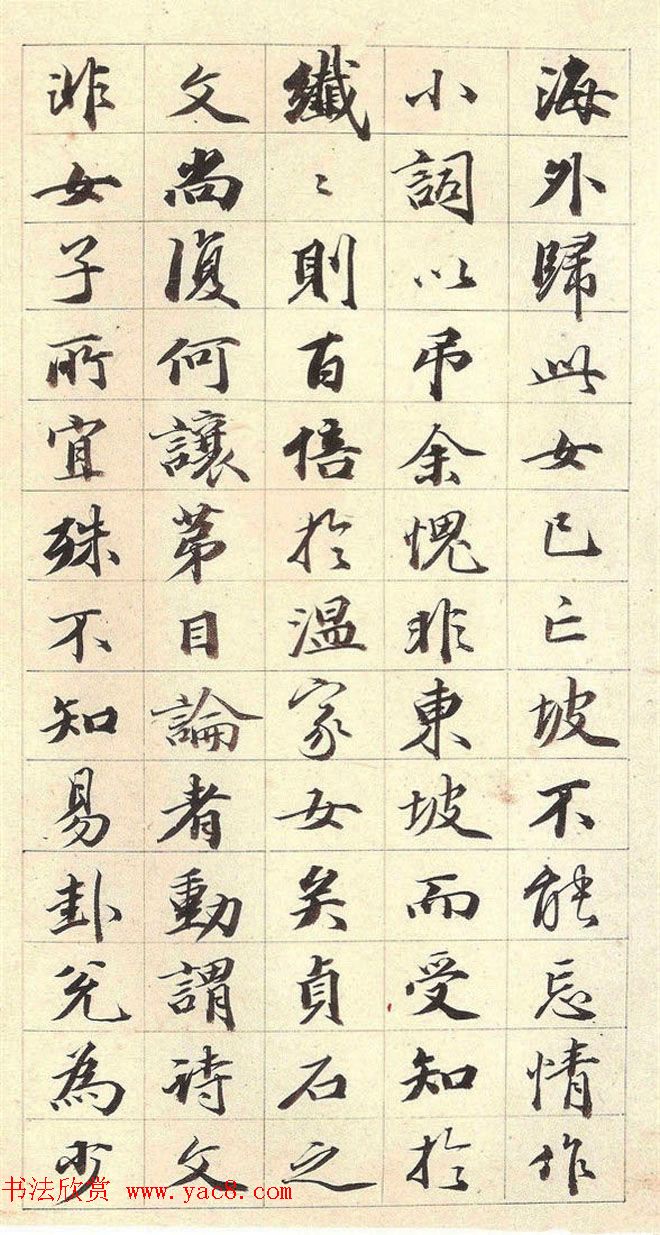 海外歸此女已亡坡不能忘情作
小詞以弔余愧非東坡而受知於
纖〻則百倍於溫家女矣貞石之
文尚復何讓第目論者動謂诗文
非女子所宜殊不知易卦兑為少
书法欣赏 www.yac8.com